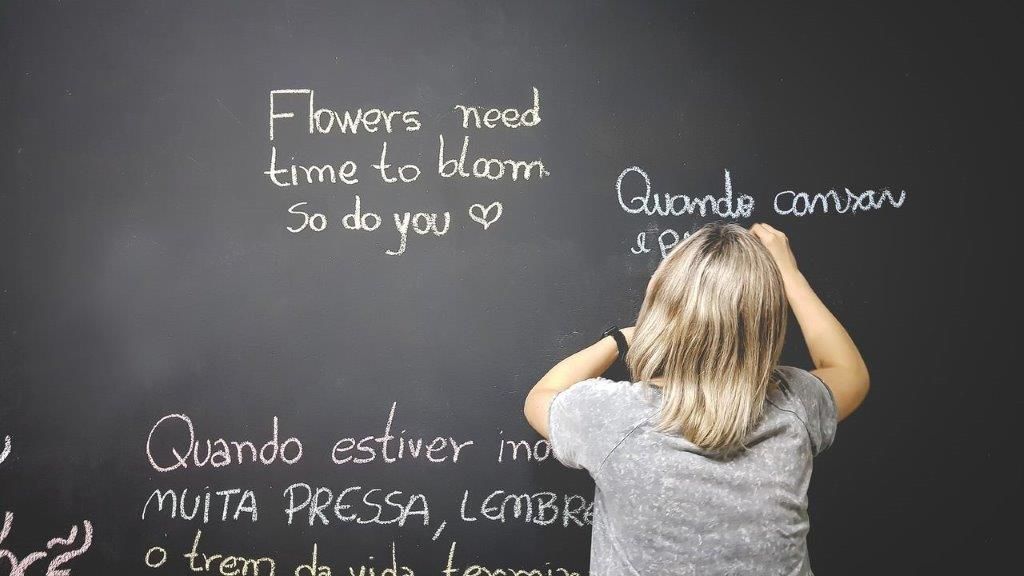 Flowers need
time to bloom
so do you
Quando cansar
e
Quando estiver
MUITA PRESSA, LEMBRE
o trem da vida